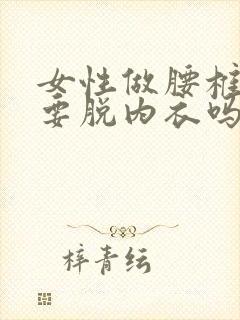 女性做腰椎
要脱内衣吗
梓青纭